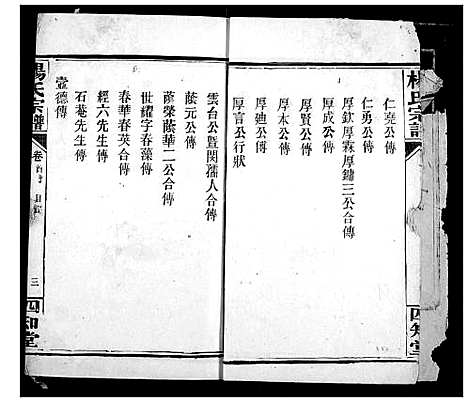 楊氏宗譜
四知堂
仁堯公傳
仁勇公傳
厚欽厚霖厚鏞三公合傳
厚成公傳
厚賢公傳
厚本公傳
厚廸公傳
厚言公行狀
雲台公暨閔孺人合傳
蔭元公傳
蔭榮蔭華二公合傳
世耀字春藻傳
春華春英合傳
經六先生傳
石菴先生傳
壼德傳
楊氏宗譜
卷首
三
四知堂